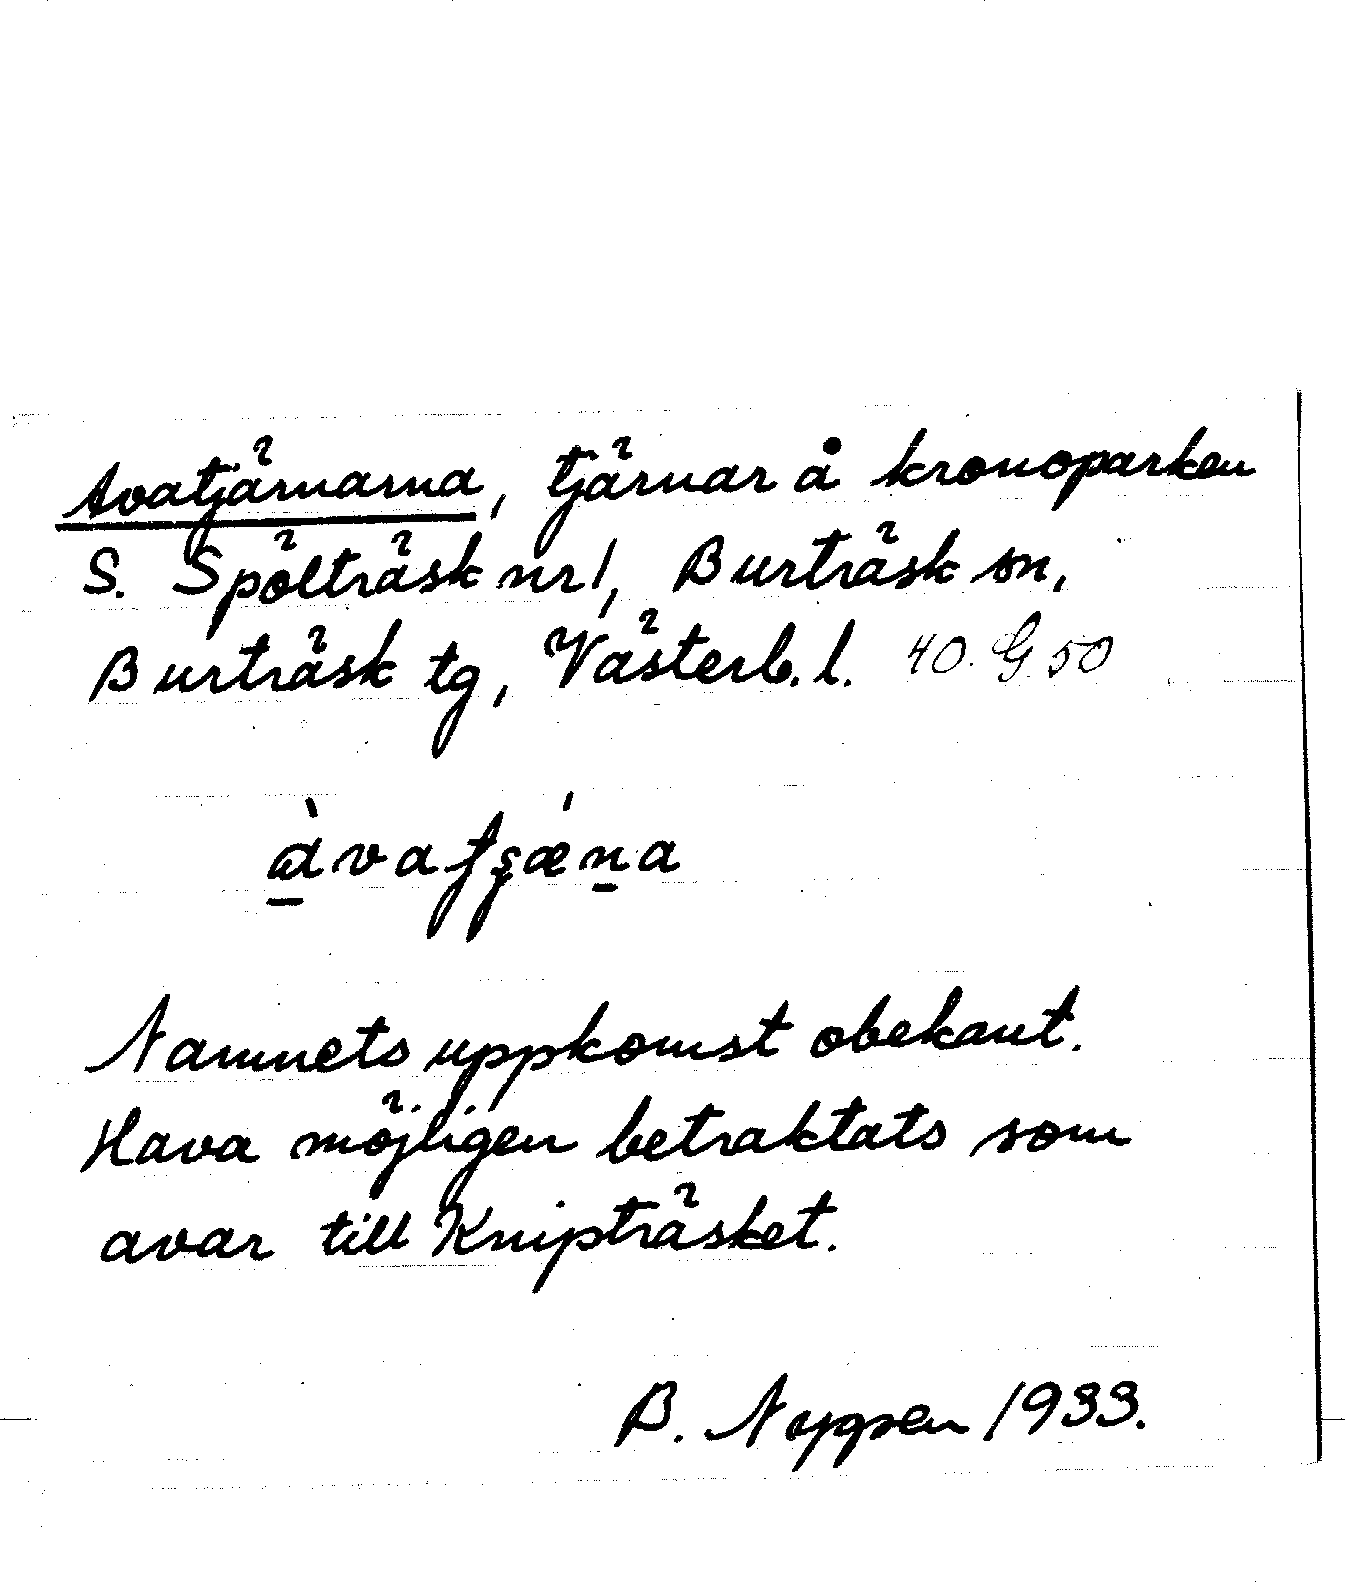 Avatjärnarna, tjärnar å kronoparken
S. Spölträsk nr 1, Burträsk sn,
Burträsk tg, Västerb. l. 40. G 50
àvatʂǽṉa
Namnets uppkomst obekant.
Hava möjligen betraktats som
avar till Knipträsket.
B. 1933.